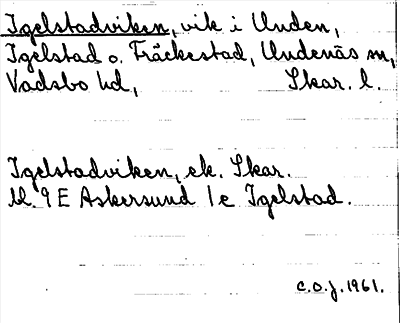 Igelstadviken, vik i Unden,
Igelstad o. Fräckestad, Undenäs sn,
Vadsbo hd, Skar. l.
Igelstadviken, ek. Skar.
bl. 9 E Askersund 1e Igelstad.
C.O.J. 1961.